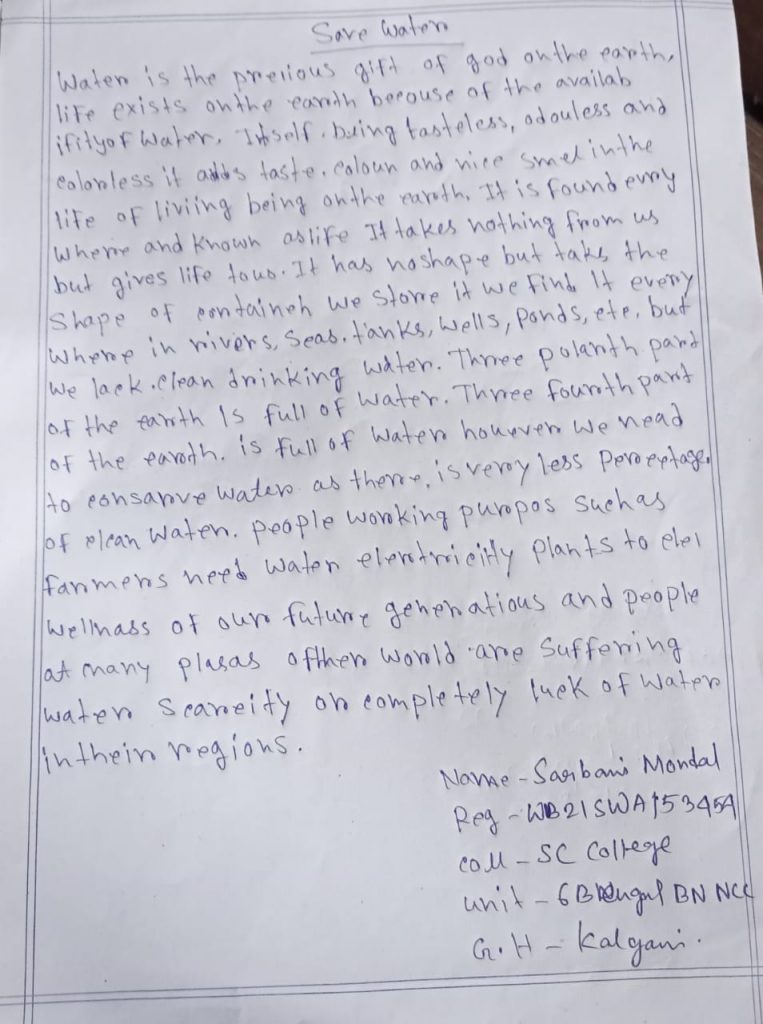 Save Water
Water is the prerious gift of god onthe earth,
life exists onthe earth beeouse of the availab
ifityof Water. Itself. buing tasteless, odouless and
colorless it adds taste. coloun and nice smel inthe
life of liviing being onthe earoth. It is found emry
Where and known aslife It takes nothing from us
but gives life tous. It has noshape but taks the
Shape of containeh We Store it we find It every
Where in rivers, Seas. tanks, Wells, Ponds, etc. but
We lack .clean drinking water. Three polanth part
of the earth Is full of water. Three fourth part
of the earoth. is full of water however We nead
to consarve water as there, is very less peroeptage.
of clean Water. people working puropos Suchas
farmers need Water elertroicitly plants to elei
Wellnass of our future generatious and people
at many plasas ofther World are Suffering
water Scarecity or completely luck of Water
in their regions.
Name - Sarbani Mondal
Reg - WB21SWA153454
coll - SC College
unit - 6 Bengal BN NCC
G.H - Kalyani.